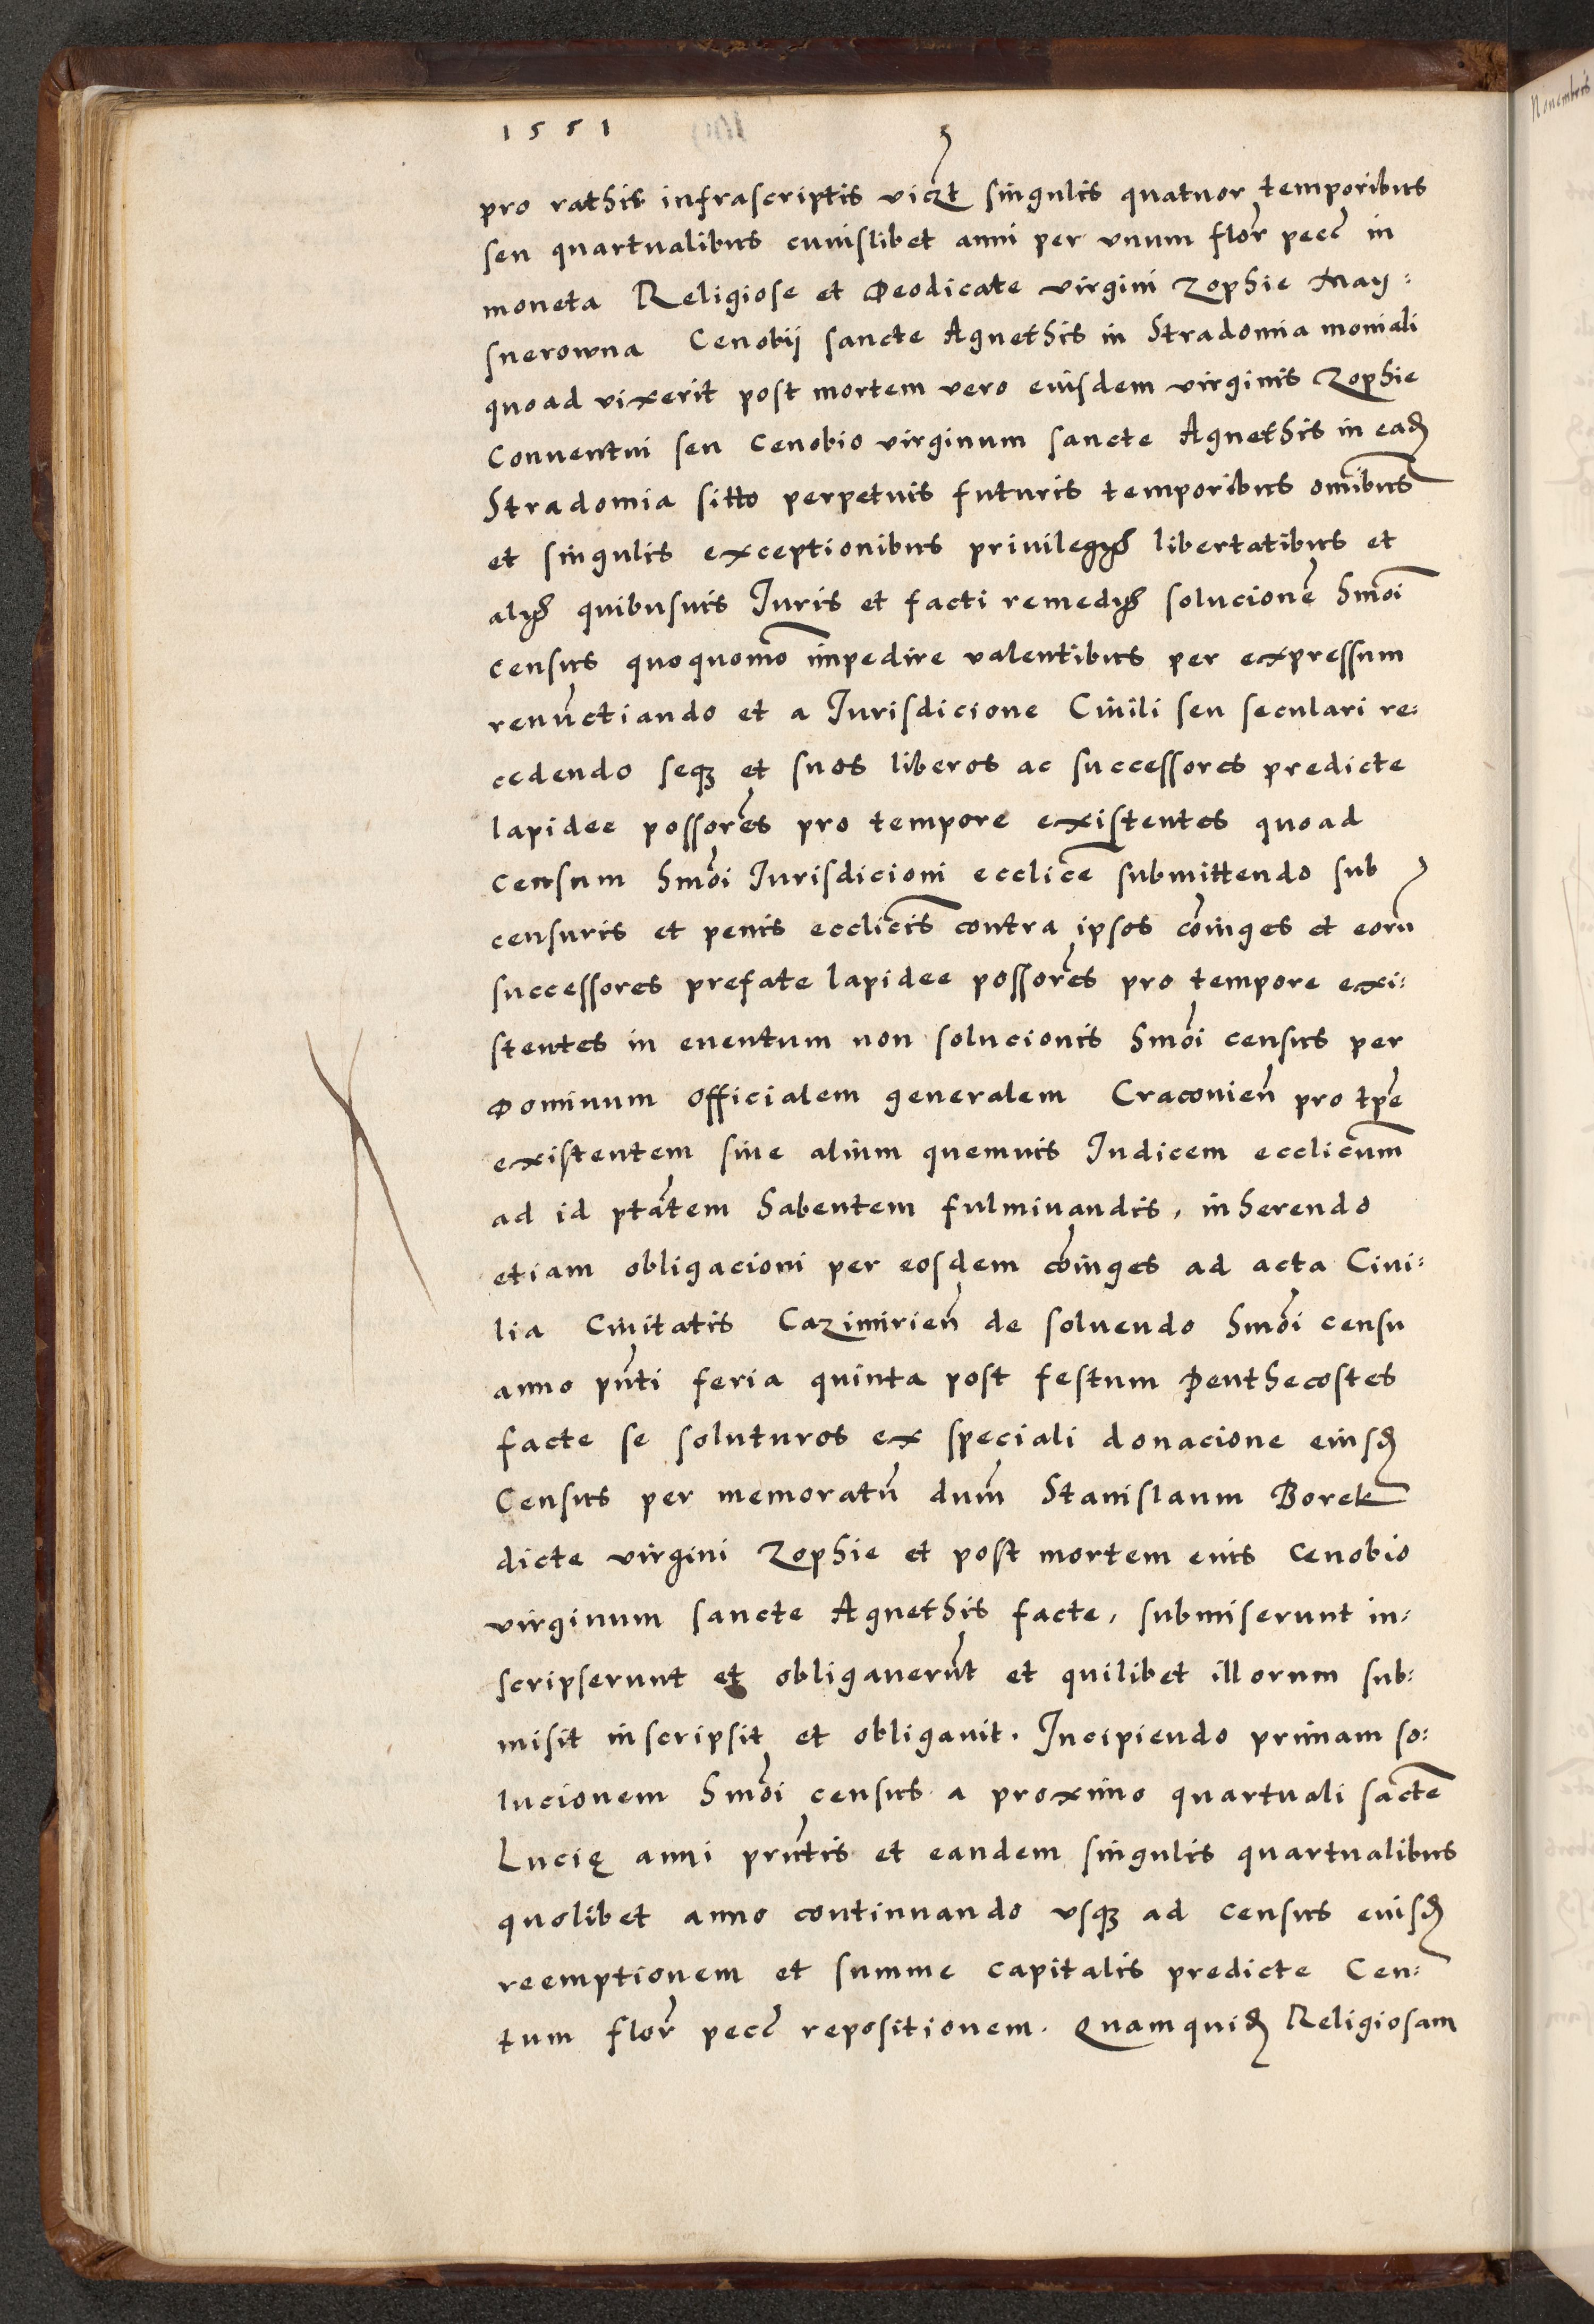 1551
pro rathis infrascriptis vicꝫt singulis quatuor temporibus
seu quartualibus cuiuslibet anni per vnum flor̄ pecc̄ in
moneta Religiose et Deodicate virgini Zophie May:
snerowna Cenobij sancte Agnethis in Stradomia moniali
quoad vixerit post mortem vero eiusdem virginis Zophie
Conuentui seu Cenobio virginum sancte Agnethis in eaꝺ̄
Stradomia sitto perpetuis futuris temporibus om̄ibus
et singulis exceptionibus priuilegijs libertatibus et
alijs quibusuis Iuris et facti remedijs solucionē hmōi
census quoquomō impedire valentibus per expressum
renūctiando et a Iurisdicione Ciuili seu seculari re:
cedendo seqꝫ et suos liberos ac successores predicte
lapidee possor̄es pro tempore existentes quoad
Censum hmōi Iurisdicioni ecclicē submittendo sub
censuris et penis ecclic̄is contra ipsos cōiuges et eorū
successores prefate lapidee possor̄es pro tempore exi:
stentes in euentum non solucionis hmōi census per
Dominum Officialem generalem Cracouien̄ pro tp̄e
existentem siue alium quemuis Iudicem ecclicum̄
ad id ptātem habentem fulminandis, inherendo
etiam obligacioni per eosdem cōiuges ad acta Ciui:
lia Ciuitatis Cazimirien̄ de soluendo hmōi censu
anno pn̄ti feria quinta post festum Penthecostes
facte se soluturos ex speciali donacione eiusꝺ̄
Census per memoratū dum̄ Stanislaum Borek
dicte virgini Zophie et post mortem eius Cenobio
virginum sancte Agnethis facte, submiserunt in:
scripserunt et obligauerūt et quilibet illorum sub:
misit inscripsit et obligauit. Incipiendo primam so:
lucionem hmōi census a proximo quartuali sāctē
Lucię anni prn̄tis et eandem singulis quartualibus
quolibet anno continuando vsqꝫ ad census eiusꝺ̄
reemptionem et summe capitalis predicte Cen:
tum flor̄ pecc̄ repositionem. Quamquiꝺ̄ Religiosam
Nouembris